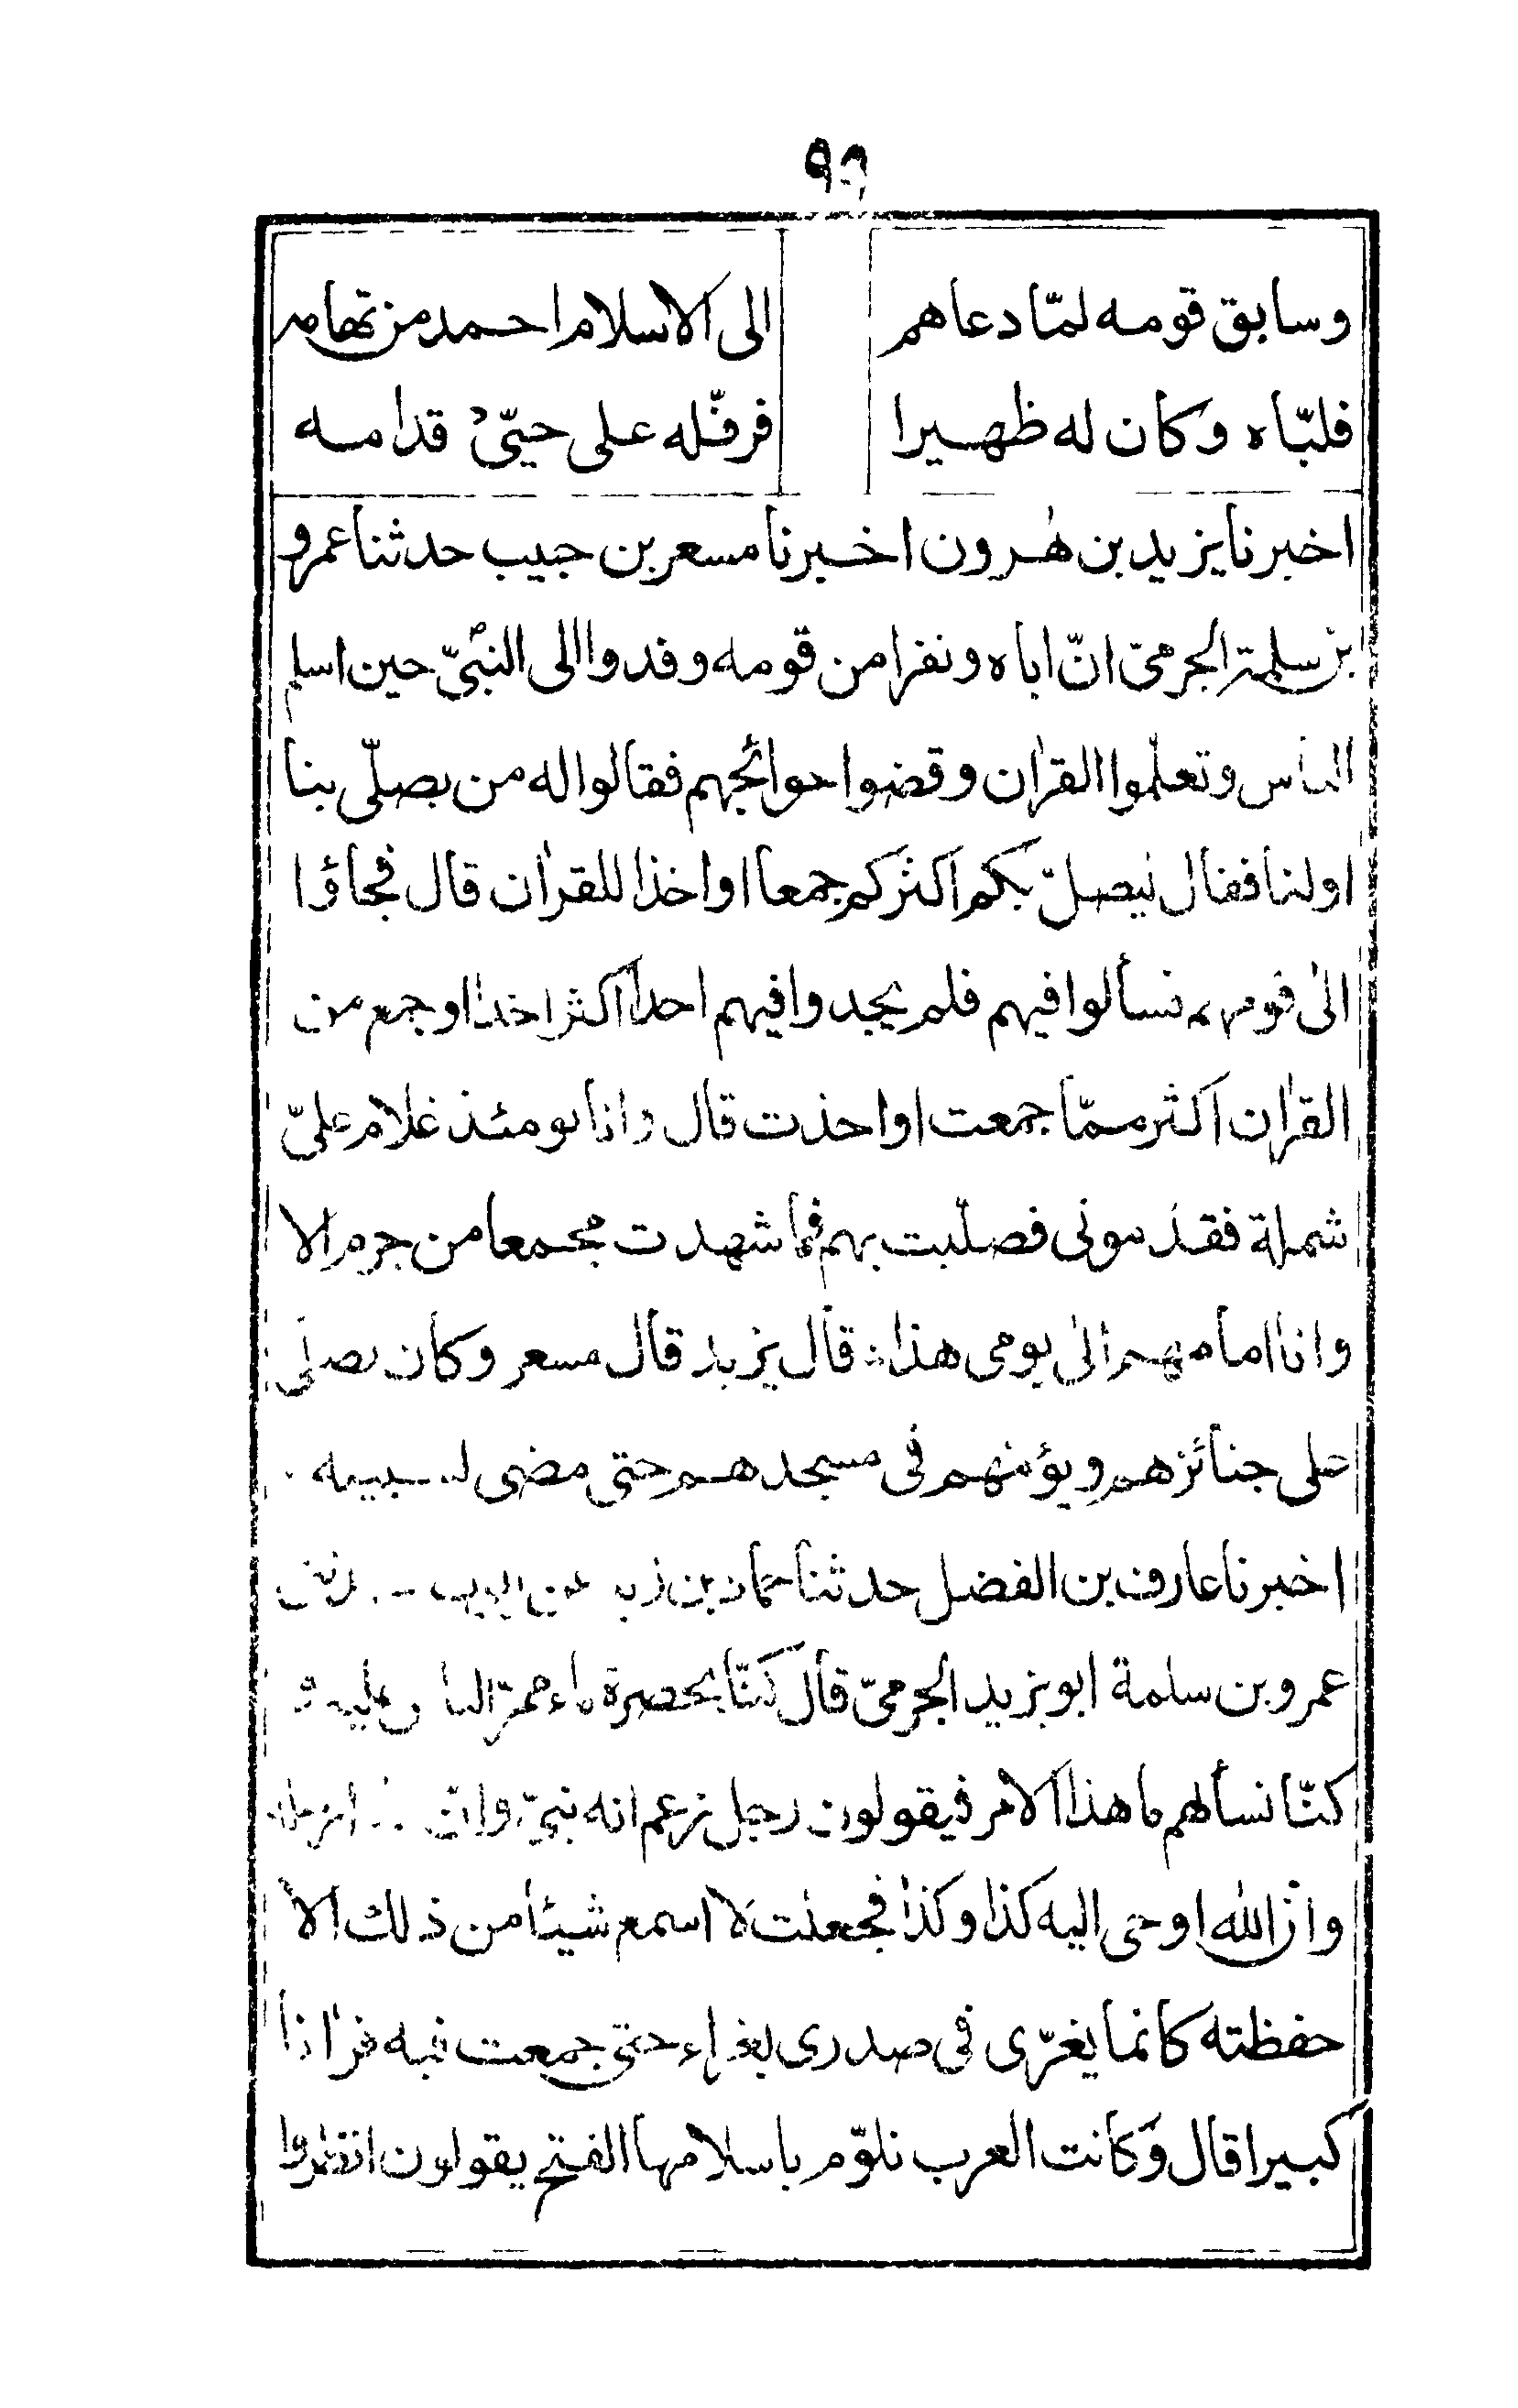 ٩٩
وسابق قومه لمّا دعاهم الى الاسلام احمد من تهامه
فلبّاه وكان له ظهيرا فرفّله على حيّيْ قدامه
اخبرنا يزيد بن هٰرون اخبرنا مسعر بن حبيب حدثنا عمرو
بن سلمة الجرمىّ انّ اباه ونفرا من قومه وفدوا الى النبىّ حين اسلم
الناس وتعلّموا القرٰان وقضوا حوائجهم فقالوا له من يصلّى بنا
او لنا فقال ليصلّ بكم اكثركم جمعا او اخذا للقرٰان قال فجاؤا
الى قومهم فسألوا فيهم فلم يجدوا فيهم احدا اكثر اخذا او جمع من
القرٰان اكثر ممّا جمعت او اخذت قال وانا يومئذ غلام علىّ
شملة فقدمونى فصلّيت بهم فما شهدت مجمعا من جرم الا
وانا امامهم الى يومى هذا ∴ قال يزيد قال مسعر وكان يصلّى
على جنائزهم ويؤمّهم فى مسجدهم حتى مضى لسبيله ٠
اخبرنا عارف بن الفضل حدثنا حماد بن زيد عن ايوب
عمرو بن سلمة ابو يزيد الجرمىّ قال كنّا بحضرة ماء ممرّ الناس عليه و
كنّا نسألهم ما هذا الامر فيقولون رجل زعم انه نبىّ وانّ
وان الله اوحى اليه كذا وكذا فجعلت لا اسمع شيئا من ذلك الا
حفظته كانما يغرّى فى صدرى بغراء حتى جمعت فيه قرٰانا
كبيرا قال وكانت العرب تلوّم باسلامها الفتح يقولون انظروا